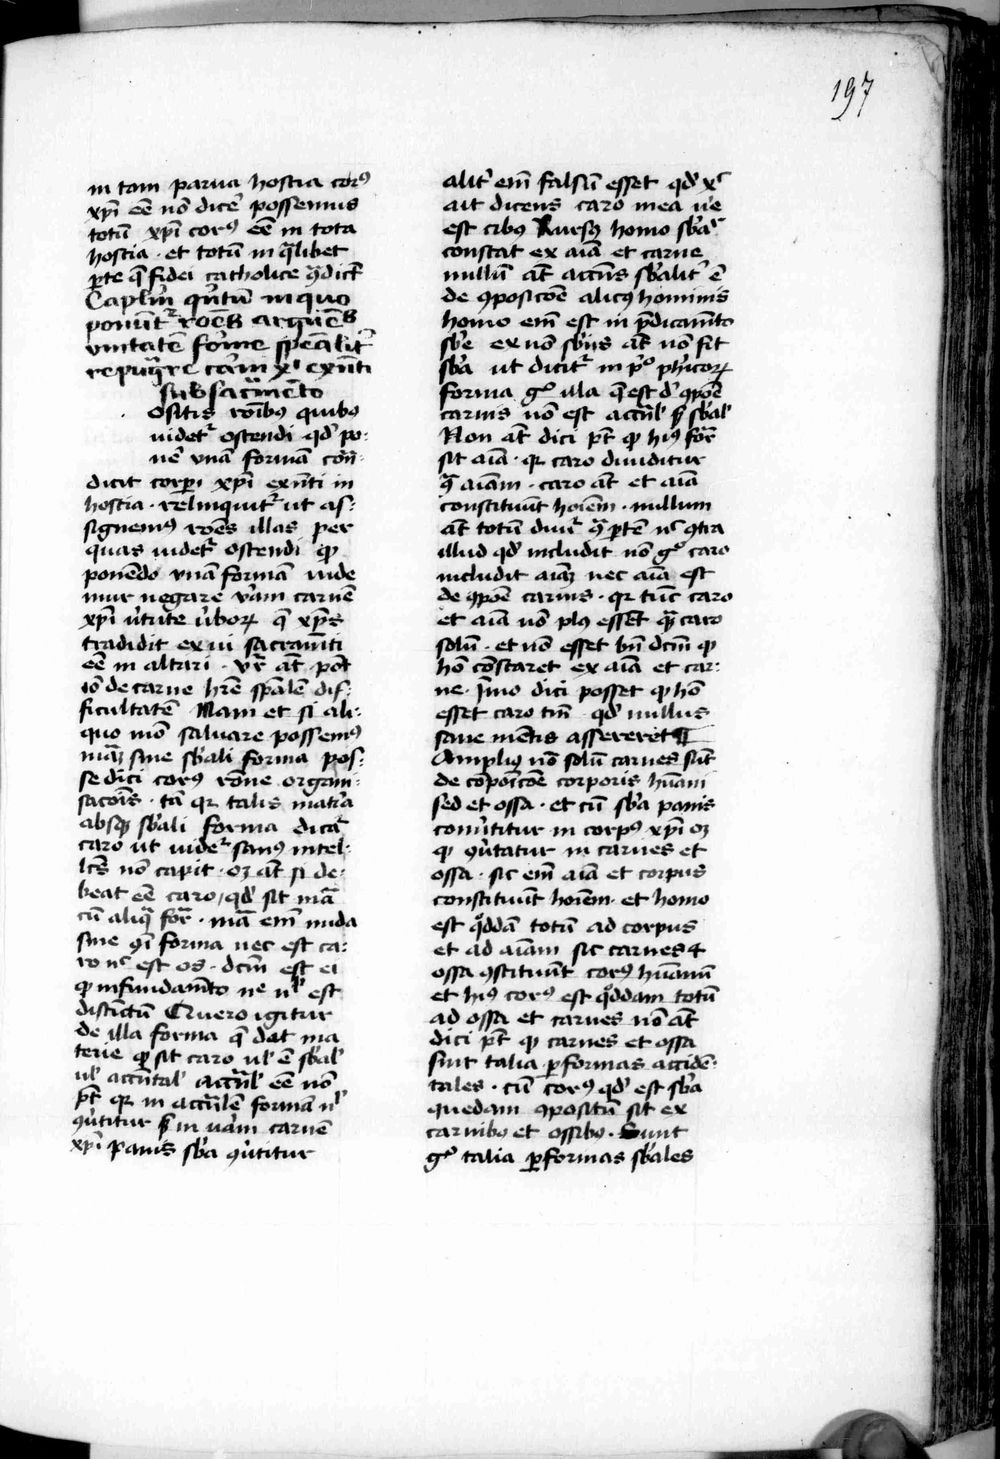 197
in tam parua hostia corꝯ
xp̄i eē nō dicē possemus
totū xp̄i corꝯ eē in tota
hostia · et totū in q̄libet
ꝑte q̄ fidei catholice ꝯdict̄
Caplm̄ qn̄tū in quo
ponūt᷑ rōēs arguēs
vnitatē forme sp̄ealit᷑
repuḡre carni xi exn̄ti
sub sacm̄ento
ositis rōibꝯ quibꝯ
uidet᷑ ostendi qd̛ po-
nē vnā formā con̄-
dicit corpi xp̄i exn̄ti in
hostia · relinquit᷑ ut as-
signemꝯ rōes illas per
quas uidet᷑ ostendi ꝙ
ponēdo vnā formā uide
mur negare vām carnē
xp̄i ūtute ūborꝝ q̄ xp̄s
tradidit ex ui sacramn̄ti
eē in altari · vr̄ at̄ pōt
iō de carne hr̄e sp̄alē dif-
ficultatē Nam et si ali-
quo mō saluare possemꝯ
māꝫ sine sb̄ali forma pos-
se dici corꝯ rōne organi-
sacōis · tā qr talis mat̄ia
absqꝫ sb̄ali forma dicat᷑
caro ut uidet᷑ sanꝯ intel-
lcs̄ nō capit · oꝫ at̄ si de-
beat eē caro, qd̛ sit mā
cū aliq̄ for᷑ · mā em̄ nuda
sine oī forma nec est ca-
ro nc̄ est os · dcm̄ est ei
ꝙ in fundamn̄to ne nl̛ est
distinctū Quero igitur
de illa forma q̄ dat ma
terie ꝙ sit caro ul̛ ē sb̄al̛
ul̛ accn̄tal̛ accn̄tal̛ eē nō
pt̄ qr in accn̄talē formā nl̛
ꝯūtitur sꝫ in uām carnē
xp̄i panis sb̄a ꝯūtitur
alit᷑ em̄ falsū esset qd̛ xc
ait dicens caro mea ue
est cibꝯ Rursꝯ homo sb̄al᷑
constat ex aīa et carne
nullū at̄ accn̄s sb̄alit᷑ ē
de ꝯposicōe alicꝯ hominis
homo em̄ est in p̄dicamn̄to
sb̄e ex nō sb̄iis at̄ nō fit
sb̄a ut dicit᷑ in pº phicorꝝ
forma gº illa q̄ est d̛ ꝯpōe
carnis nō est accn̄tal̛ sꝫ sb̄al̛
Non at̄ dici pt̄ ꝙ hiꝯ for᷑
sit aīa · qr caro diuiditur
ꝯ̄ aīam · caro at̄ et aīa
constituūt hoīem · nullum
at̄ totū diuit᷑ ꝯ̄ ꝑtē nc̄ ꝯtra
illud qd̛ includit nō gº caro
includit aīaꝫ nec aīa est
de ꝯpōe carnis · qr tūc caro
et aīa nō plꝯ esset qm̄ caro
solū · et nō esset bn̄ dcm̄ ꝙ
hō constaret ex aīa et car-
ne · Imo dici posset ꝙ hō
esset caro tm̄ qd̛ nullus
sane mentis assereret ¶
Ampliꝯ nō solū carnes sūt
de cōpoīcōe corporis hūani
sed et ossa · et cū sb̄a panis
conūtitur in corpꝯ xp̄i oꝫ
ꝙ ꝯūtatur in carnes et
ossa · sic em̄ aīa et corpus
constituūt hoīem · et homo
est qd̄dā totū ad corpus
et ad aīam sic carnes ⁊
ossa ꝯstituūt corꝯ hūanū
et hiꝯ corꝯ est qd̄dam totū
ad ossa et carnes nō at̄
dici pt̄ ꝙ carnes et ossa
sint talia ꝑ formas accidē-
tales · cū corꝯ qd̛ est sb̄a
quedam ꝯpositū sit ex
carnibꝯ et ossibꝯ · Sunt
gº talia ꝑ formas sb̄ales